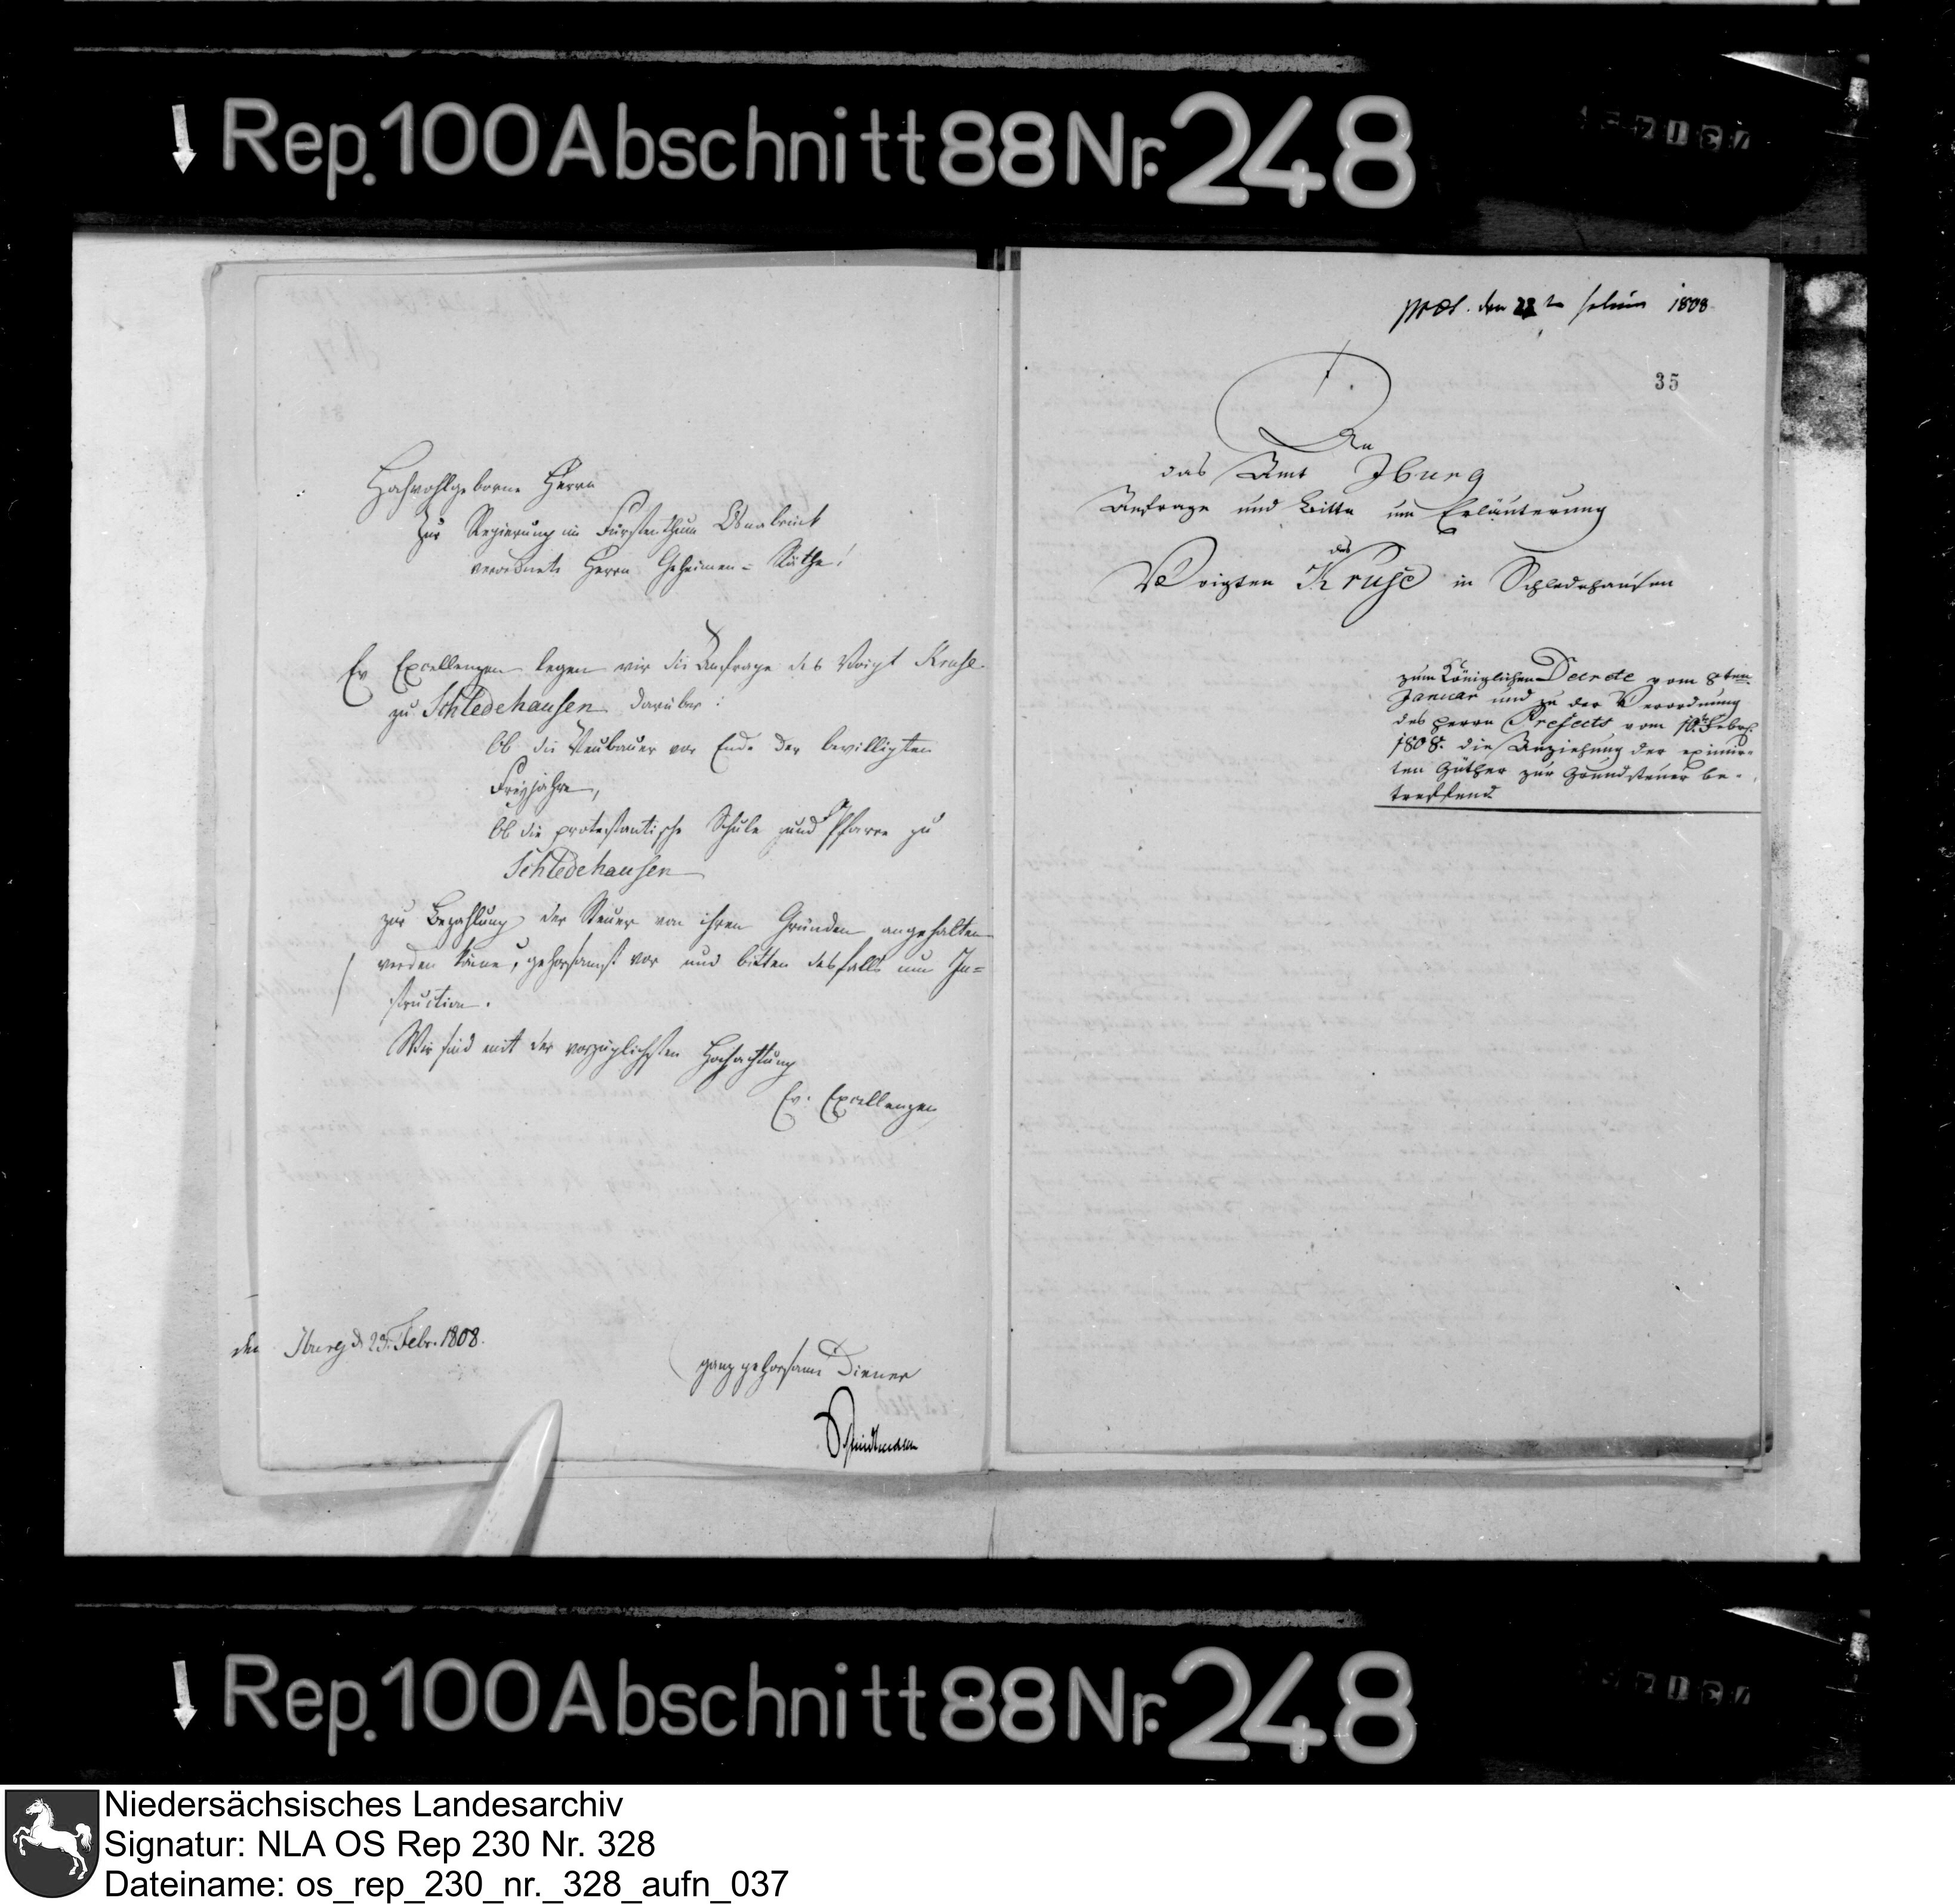 Rep. 100 Abschnitt 88 Nr. 248
Hochwohlgeborne Herrn
Zur Regierung im Fürstenthum Osnabrück
verordnete Herrn Geheimen-Räthe!
Ew Excellenzen legen wir die Anfrage des Voigt Kruse
zu Schledehausen darüber:
Ob die Neubauer vor Ende der bewilligten
Freyjahre,
Ob die protestantische Schule und Pfarre zu
Schledehausen
zur Bezahlung der Steuer von ihren Gründen angehalten
werden könne, gehorsamst vor und bitten desfalls um In=
struction.
Wir sind mit der vorzüglichsten Hochachtung
Ew. Excellenzen
Iburg d 23. Febr. 1808.
ganz gehorsame Diener
den 1808
35
An
das Amt Iburg
Anfrage und Bitte um Erläuterung
des
Voigten Kruse in Schledehausen
zum Königlichen Decrete vom 8ten
Januar und zu der Verordnung
des Herrn Prefects vom 10t Febr.
1808. die Anziehung der eximir-
ten Güther zur Grundsteuer be-
treffend
Rep. 100 Abschnitt 88 Nr. 248
Niedersächsisches Landesarchiv
Signatur: NLA OS Rep 230 Nr. 328
Dateiname: os_rep_230_nr._328_aufn_037